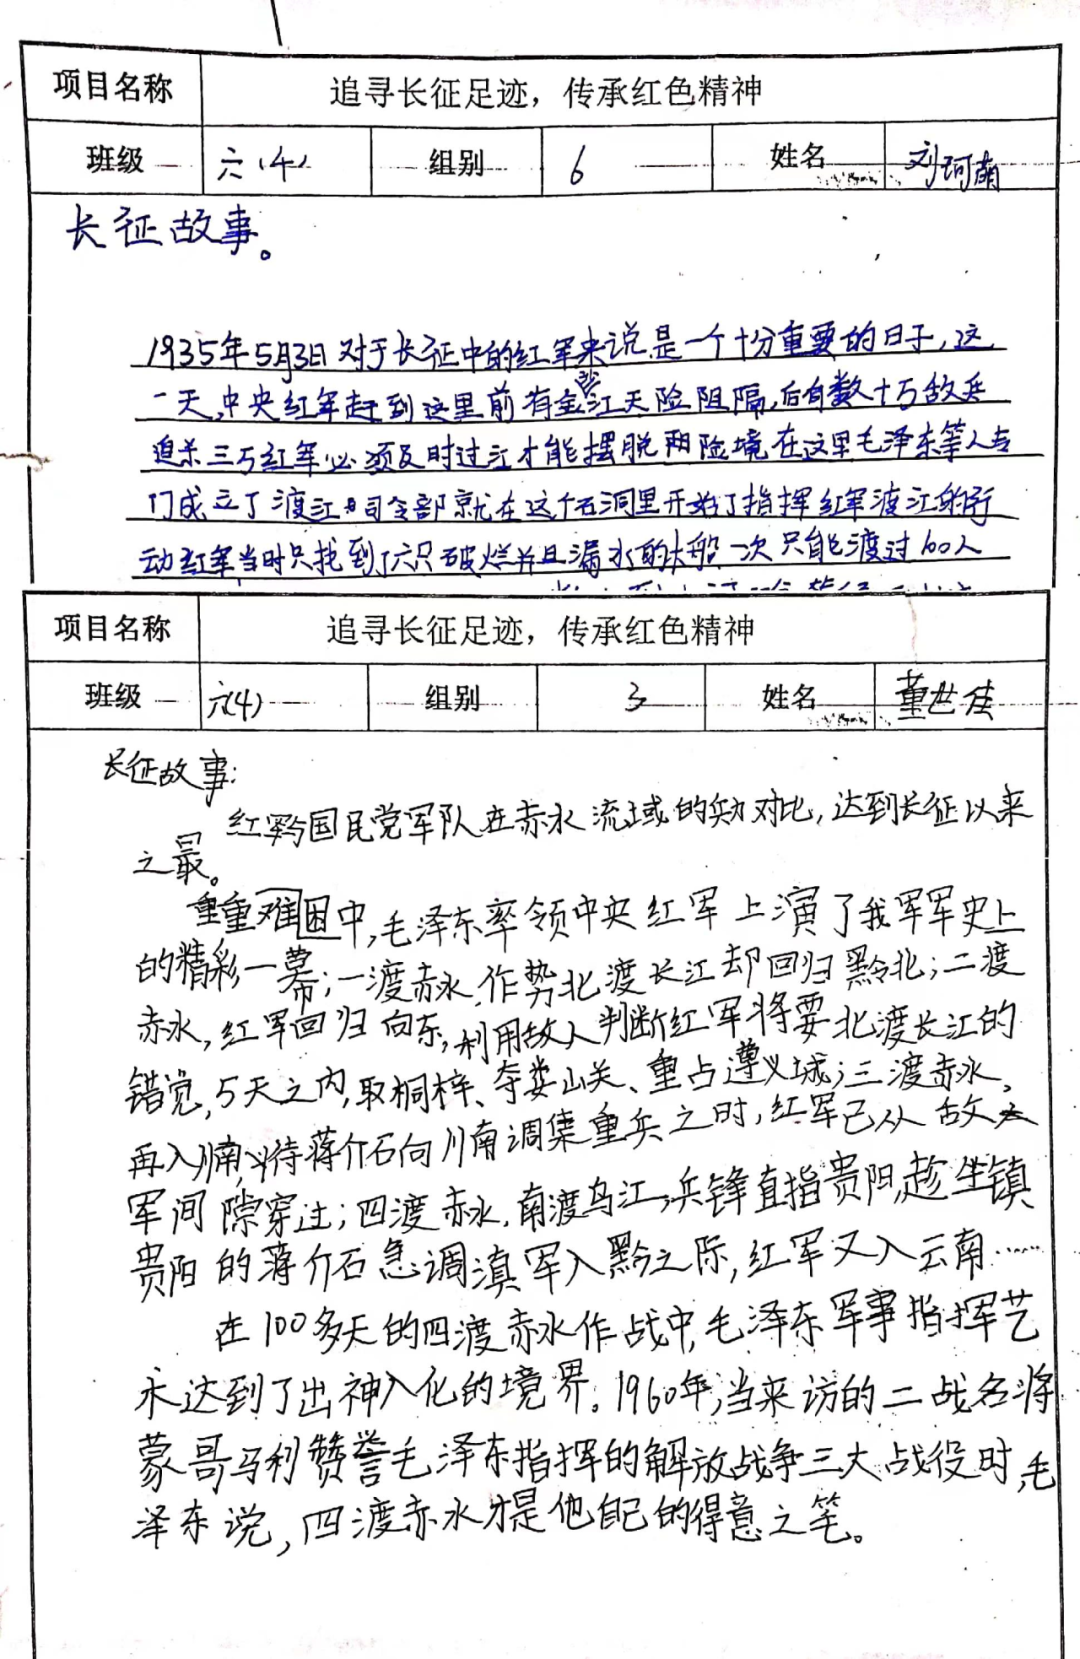 项目名称 追寻长征足迹，传承红色精神
班级 六(4) 组别 6 姓名 刘珂萌
长征故事。
1935年5月3日对于长征中的红军来说是一个十分重要的日子,这
一天,中央红军赶到这里前有金沙江天险阻隔,后有数十万敌兵
追杀三万红军必须及时过江才能摆脱 险境在这里毛泽东等人专
门成立了渡江司令部就在这个石洞里开始了指挥红军渡江的行
动红军当时只找到了六只破烂并且漏水的大船一次只能渡过60人
项目名称 追寻长征足迹，传承红色精神
班级 六(4) 组别 3 姓名 董世佳
长征故事:
红军与国民党军队在赤水流域的兵力对比,达到长征以来
之最。
重重难困中,毛泽东率领中央红军上演了我军军史上
的精彩一幕;一渡赤水,作势北渡长江却回归黔北;二渡
赤水,红军回归向东,利用敌人判断红军将要北渡长江的
错觉,5天之内,取桐梓、夺娄山关、重占遵义城;三渡赤水,
再入川南,待蒋介石向川南调集重兵之时,红军已从敌
军间隙穿过;四渡赤水,南渡乌江,兵锋直指贵阳,趁坐镇
贵阳的蒋介石急调滇军入黔之际,红军又入云南……
在100多天的四渡赤水作战中,毛泽东军事指挥艺
术达到了出神入化的境界。1960年,当来访的二战名将
蒙哥马利赞誉毛泽东指挥的解放战争三大战役时,毛
泽东说,四渡赤水才是他自己的得意之笔。